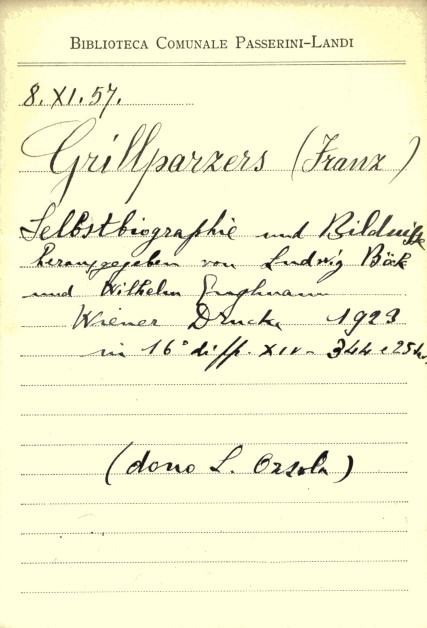 BIBLIOTECA COMUNALE PASSERINI-LANDI
8. XI. 57.
Grillparzers (Franz)
Selbstbiographie und Bildnisse
herausgegeben von Ludwig Böck
und Wilhelm Englmann
Wiener Drucke 1923
in 16° diff. XIV - 344 e
(dono L. Orsola)